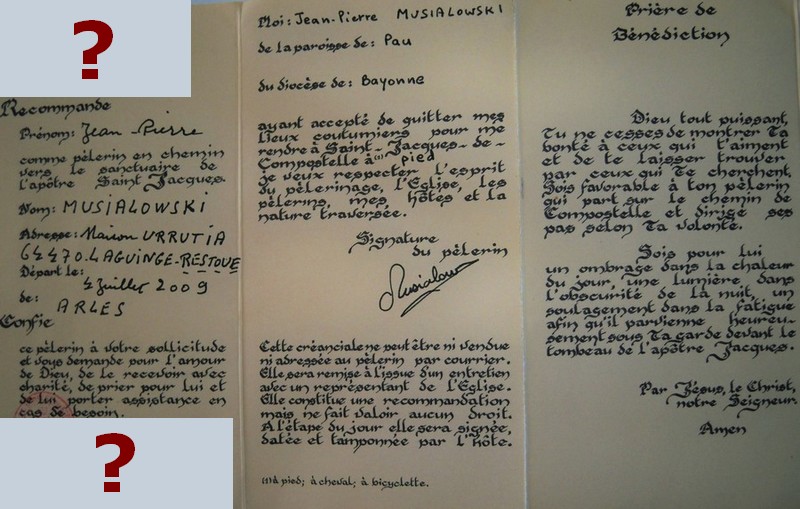 ?
Recommande
Prénom: Jean-Pierre
comme pèlerin en chemin
vers le sanctuaire de
l'apôtre Saint Jacques.
Nom: MUSIALOWSKI
Adresse: Maison URRUTIA
64470-LAGUINGE-RESTOUE
Départ le:
4 Juillet 2009
de:
ARLES
Confie
ce pèlerin à votre sollicitude
et vous demande pour l'amour
de Dieu, de le recevoir avec
charité, de prier pour lui et
de lui porter assistance en
cas de besoin.
?
Moi: Jean-Pierre MUSIALOWSKI
de la paroisse de: Pau
du diocèse de: Bayonne
ayant accepté de quitter mes
lieux coutumiers pour me
rendre à Saint-Jacques-de-
Compostelle à (1) pied
je veux respecter l'esprit
du pèlerinage, l'Eglise, les
pèlerins, mes hôtes et la
nature traversée.
Signature
du pèlerin
Musialow
Cette créanciale ne peut être ni vendue
ni adressée au pèlerin par courrier.
Elle sera remise à l'issue d'un entretien
avec un représentant de l'Eglise.
Elle constitue une recommandation
mais ne fait valoir aucun droit.
A l'étape du jour elle sera signée,
datée et tamponnée par l'hôte.
(1) à pied; à cheval; à bicyclette.
Prière de
Bénédiction
Dieu tout puissant,
Tu ne cesses de montrer Ta
bonté à ceux qui t'aiment
et de te laisser trouver
par ceux qui Te cherchent,
Sois favorable à ton pèlerin
qui part sur le chemin de
Compostelle et dirige ses
pas selon Ta volonté.
Sois pour lui
un ombrage dans la chaleur
du jour, une lumière dans
l'obscurité de la nuit, un
soulagement dans la fatigue
afin qu'il parvienne heureu-
sement sous Ta garde devant le
tombeau de l'apôtre Jacques.
Par Jésus, le Christ,
notre Seigneur.
Amen